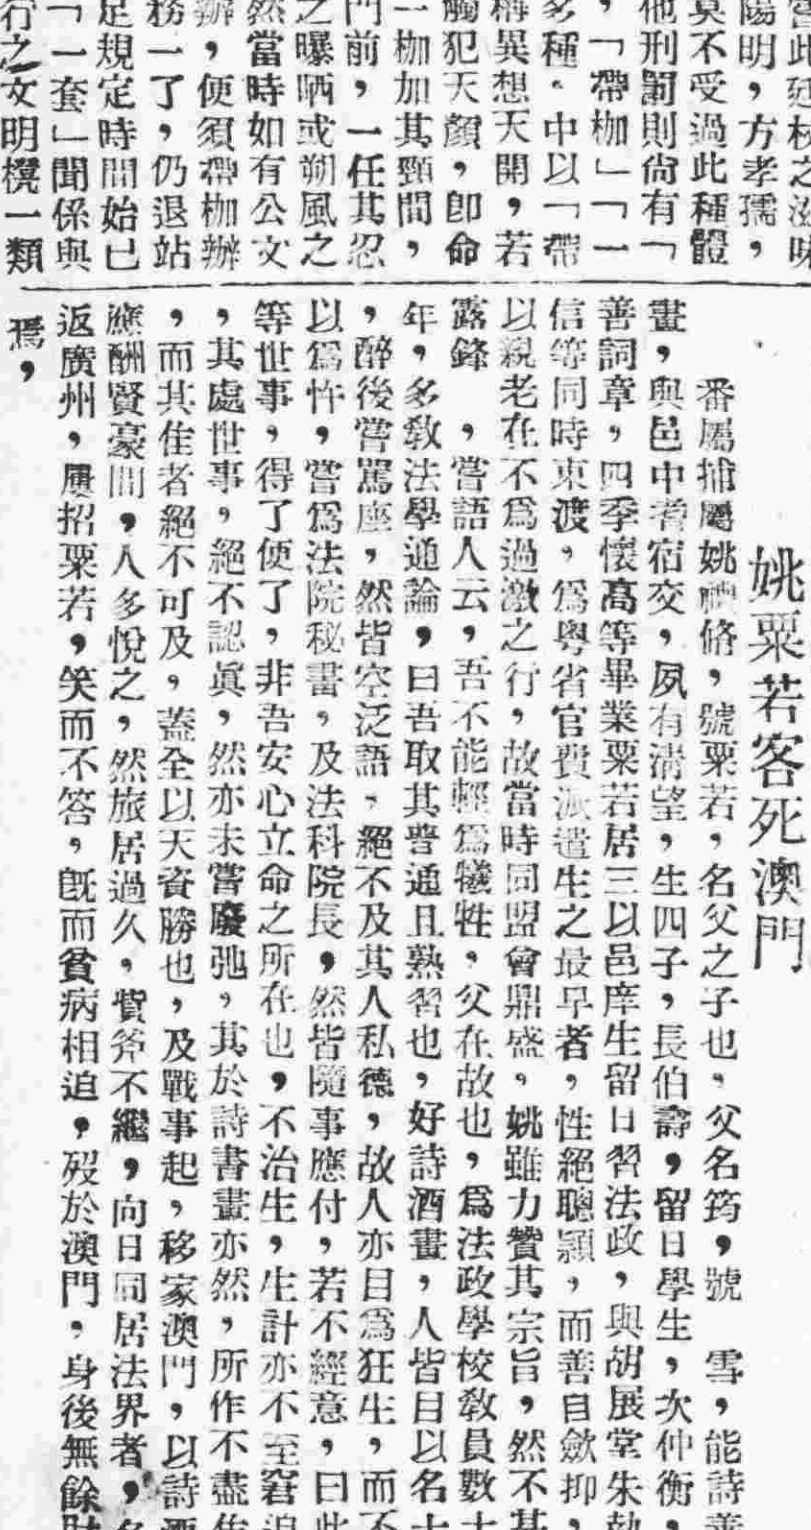 嘗此廷杖之滋味
陽明，方孝孺，
莫不受過此種體
他刑罰則尚有「
，「帶枷」「一
多種。中以「帶
稱異想天開，若
觸犯天顏，卽命
一枷加其頸間，
門前，一任其忍
之曝晒或朔風之
然當時如有公文
辦，便須帶枷辦
務一了，仍退站
足規定時間始已
「一套」聞係與
行之文明櫈一類
姚粟若客死澳門
番屬捕屬姚禮脩，號粟若，名父之子也。父名筠，號　雪，能詩善
畫，與邑中耆宿交，夙有淸望，生四子，長伯壽，留日學生，次仲衡，
善詞章，四季懷高等畢業粟若居三以邑庠生留日習法政，與胡展堂朱執
信等同時東渡，爲粤省官費派遣生之最早者，性絕聰穎，而善自斂抑，
以親老在不爲過激之行，故當時同盟會鼎盛。姚雖力贊其宗旨，然不甚
露鋒　，嘗語人云，吾不能輕爲犧牲。父在故也，爲法政學校敎員數十
年，多敎法學通論，曰吾取其普通且熟習也，好詩酒畫，人皆目以名士
，醉後嘗罵座，然皆空泛語，絕不及其人私德，故人亦目爲狂生，而不
以爲忤，嘗爲法院秘書，及法科院長，然皆隨事應付，若不經意，曰此
等世事，得了便了，非吾安心立命之所在也，不治生，生計亦不至窘迫
，其處世事，絕不認眞，然亦未嘗廢弛，其於詩書畫亦然，所作不盡佳
，而其佳者絕不可及，蓋全以天資勝也，及戰事起，移家澳門，以詩酒
應酬賢豪間，人多悅之，然旅居過久，資斧不繼，向日同居法界者，名
返廣州，屢招粟若，笑而不答，旣而貧病相迫，歿於澳門，身後無餘財
焉，